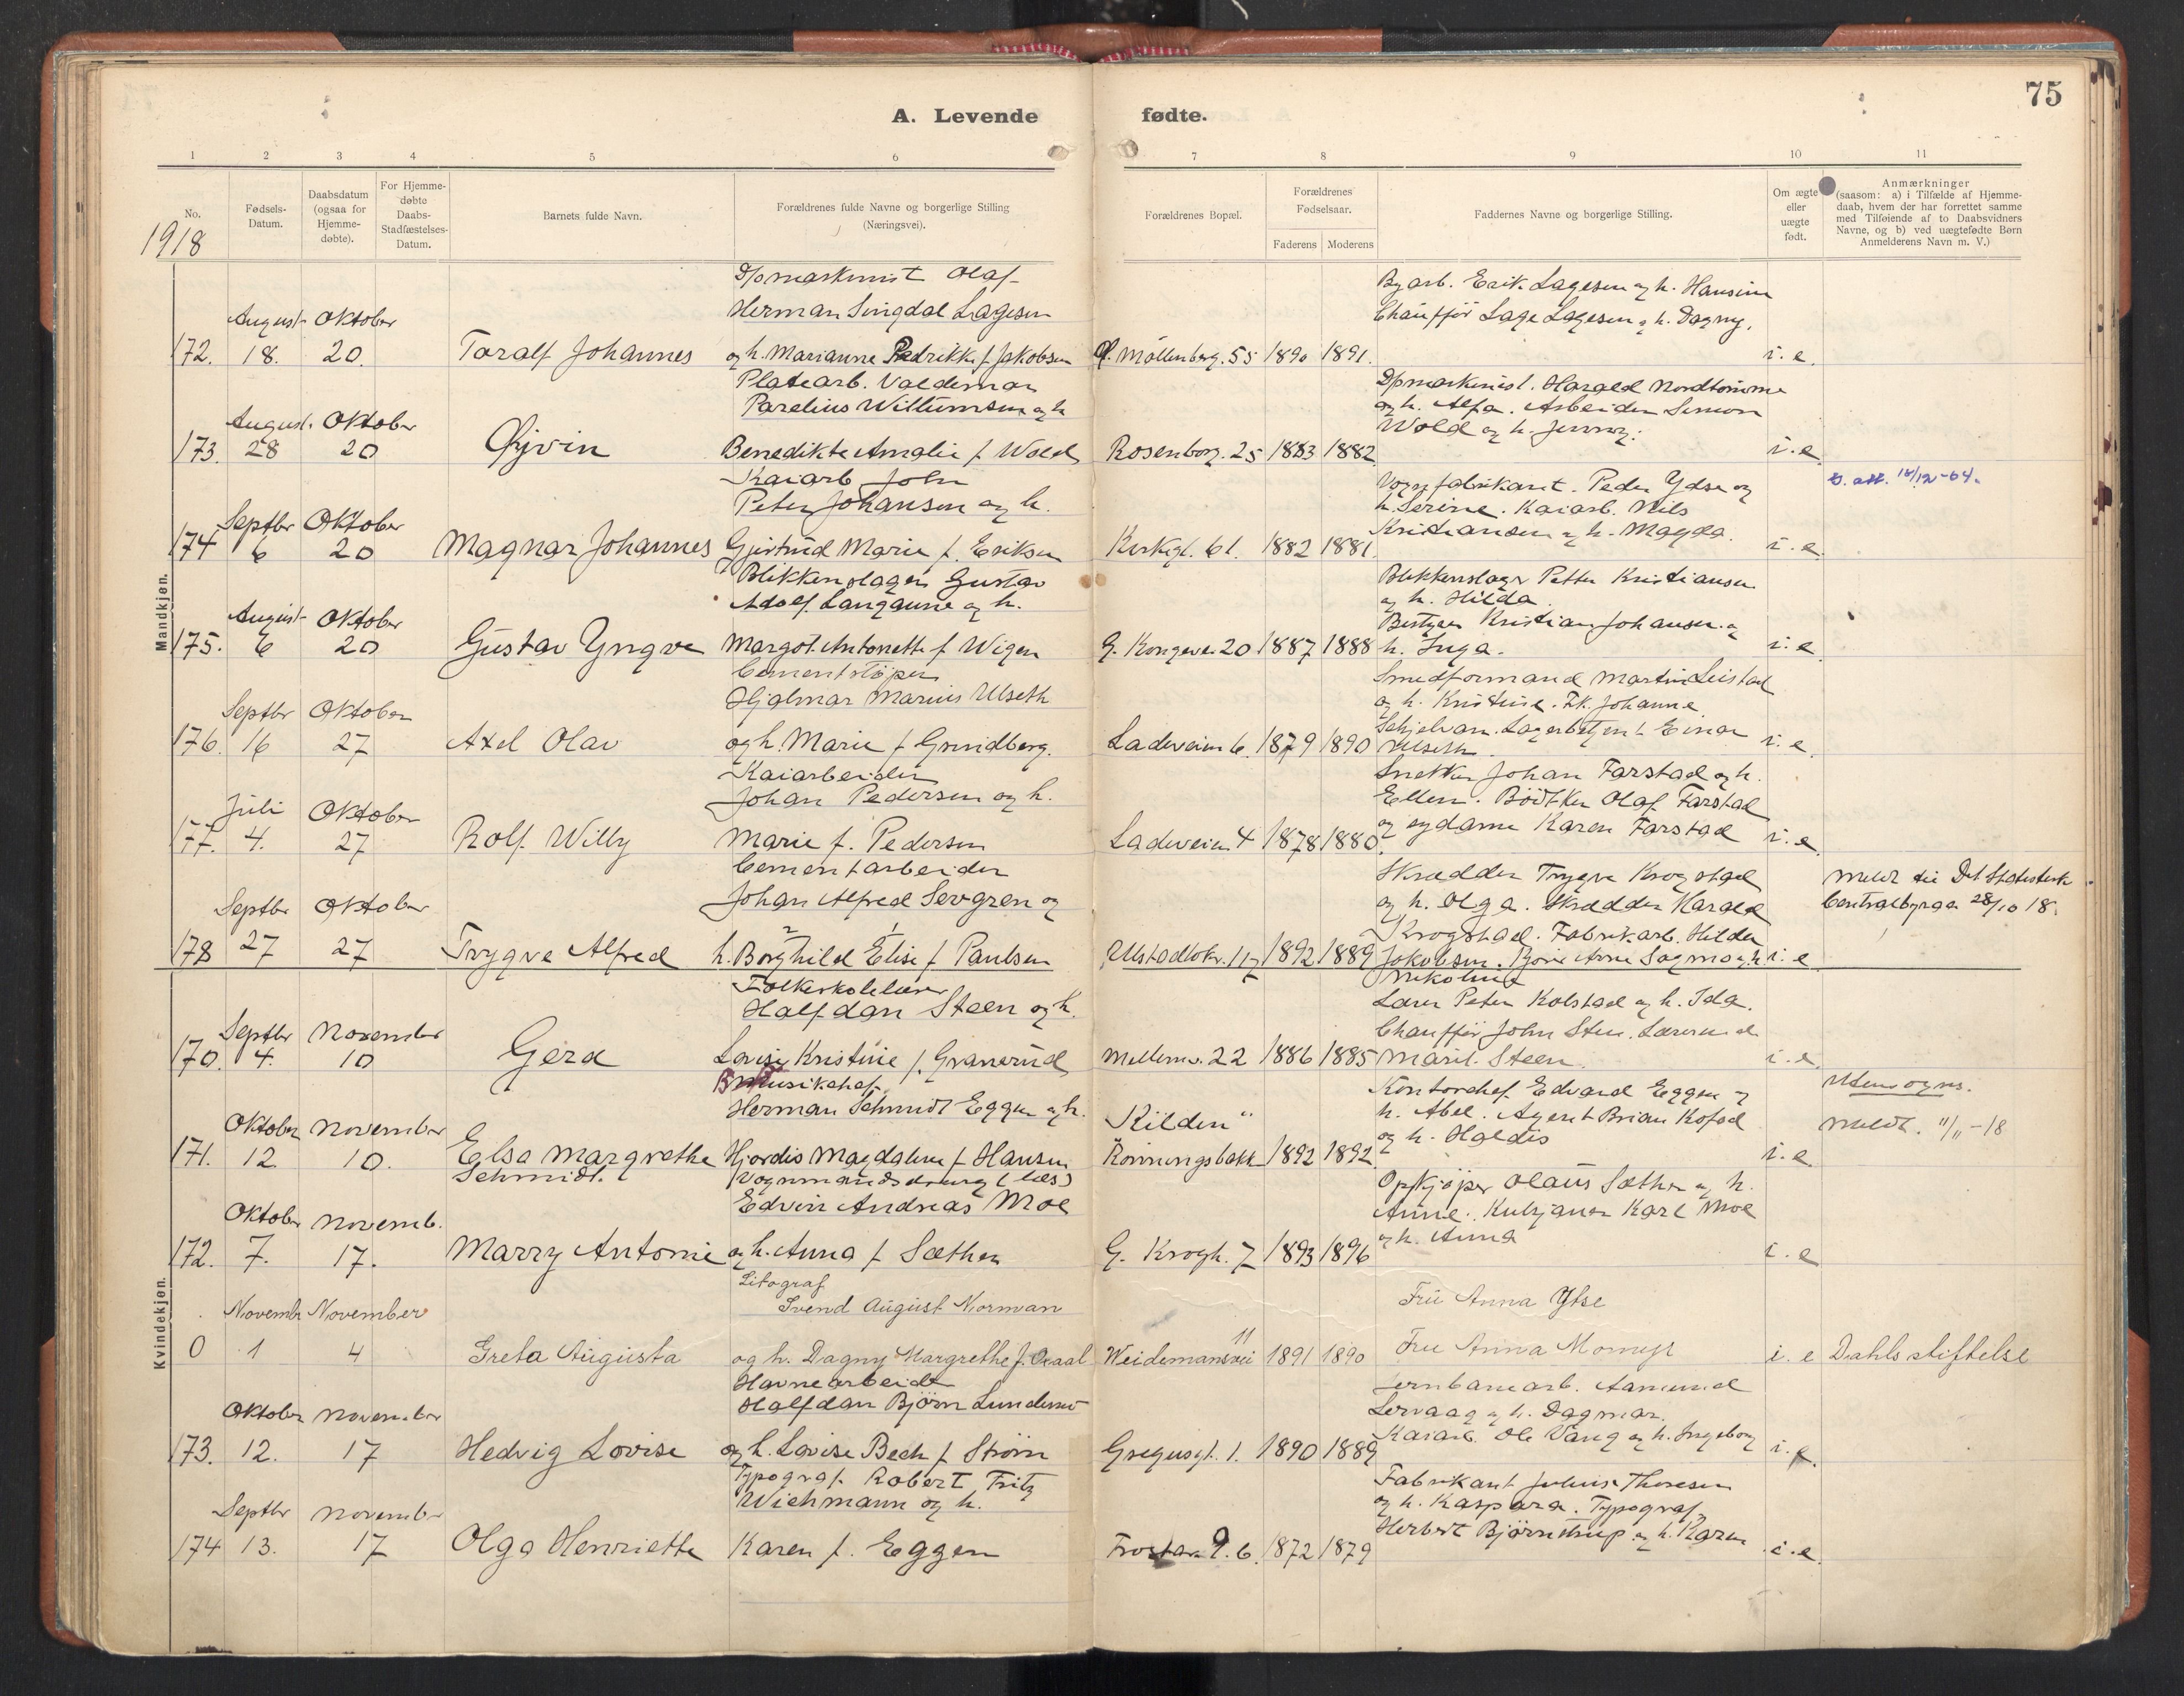 A. Levende fødte.
75
1 2 3 4 5 6 7 8 9 10 11
No.
1918
Fødsels-
Datum.
Daabsdatum
(ogsaa for
Hjemme-
døbte).
For Hjemme-
døbte
Daabs-
Stadfæstelses-
Datum.
Barnets fulde Navn.
Forældrenes fulde Navne og borgerlige Stilling
(Næringsvei).
Forældrenes Bopæl.
Forældrenes
Fødselsaar.
Faderens Moderens
Faddernes Navne og borgerlige Stilling.
Om ægte
eller
uægte
født.
Anmærkninger
(saasom: a) i Tilfælde af Hjemme-
daab, hvem der har forrettet samme
med Tilføiende af to Daabsvidners
Navne, og b) ved uægtefødte Børn
Anmelderens Navn m. V.)
Mandkjøn.
D/pmaskinist Olaf
Herman Singdal Lagesen
Byarb. Erik Lagesen og h. Hansine
Chauffør Lage Lagesen og h. Dagny.
August Oktober
172. 18. 20. Toralf Johannes og h. Marianne Fredrikke f. Jakobsen Ø. Møllenberg. 55 1890 1891. i. e.
Platearb. Valdemar
Parelius Willumsen og h
D/pmaskinist. Harald Nordtømme
og h. Alfa. Arbeider Simon
Wold og h. Jenny.
August. Oktober
173. 28 20 Øjvin Benedikte Amalie f. Wold Rosenborg. 25 1883 1882 i. e.
Kaiarb John
Peter Johansen og h.
Vognfabrikant. Peder Ydse og
h. Serine. Kaiarb. Nils
Kristiansen og h. Magda.
f. att. 18/12-64.
Septbr Oktober
174 6 20 Magnar Johannes Gjertrud Marie f. Eriksen Kirkegt. 61. 1882 1881. i. e.
Blikkenslager Gustav
Adolf Langaune og h.
Blikkenslager Petter Kristiansen
og h. Hilda.
Bestyrer Kristian Johansen og
h. Inga.
August Oktober
175. 6 20 Gustav Yngve Margot Antonette f Wigen G. Kongevei 20 1887 1888 i. e.
Cementstøper
Hjalmar Marius Ulseth
Smedformand Martin Leistad
og h. Kristine. Fk. Johanne
Schjelvan. Lagerbetjent Einar
Ulseth
Septbr Oktober
176. 16 27 Axel Olav og h. Marie f Grundberg. Ladeveien 6. 1879 1890 i. e.
Kaiarbeider
Johan Pedersen og h.
Snekker Johan Farstad og h.
Ellen. Bødtker Olaf Farstad
og sydame Karen Farstad
Juli Oktober
177. 4. 27 Rolf Willy Marie f. Pedersen Ladeveien 4 1878 1880. i. e.
Cementarbeider
Johan Alfred Sevgren og
Skrædder Trygve Krogstad
og h. Olga. Skrædder Harald
Krogstad. Fabrikarb. Hilda
Jakobsen. Bjarne Arne Sagmo og h
Nikoline
Meldt til Det Statistiske
Centralbyraa 28/10 18.
Septbr Oktober
178 27 27 Trygve Alfred h. Borghild Elise f Paulsen Ulstadløkv. 11 1892 1889 i. e
Kvindekjøn.
Folkeskolelærer
Halfdan Steen og h.
Lærer Peter Kolstad og h. Ida.
Chauffør John Steen. Lærerinde
Marit Steen.
Septbr November
170. 4. 10 Gerd Lovise Kristine f. Granerud Mellomv. 22 1886 1885 i. e.
Musikchef
Herman Schmidt Eggen og h.
Kontorchef Edvard Eggen og
h. Abel. Agent Brian Kofod
og h. Haldis
Utensogns.
Meldt. 11/11-18
Oktober November
171. 12. 10. Elsa Margrethe Schmidt. Hjørdis Magdalene f Hansen "Kilden" Rønningsbakk 1892 1892 i. e.
Vognmandsdreng (læs)
Edvin Andreas Moe
Opkjøper Olaus Sæther og h.
Anne. Kubjaner Karl Moe
og h. Anna
Oktober Novemb.
172. 7. 17. Marry Antonie og h. Anna f Sæther G. Krogh. 7 1893 1896 i. e
Litograf
Svend August Norman
Fru Anna Ytse
Fru Anna Momyr
Novembr November
0 1 4 Greta Augusta og h. Dagny Margrethe f. Oxaal Weidemannsvei 11 1891 1890 i. e Dahls stiftelse
Havnearbeider
Halfdan Bjørn Lundemo
Jernbanearb. Aamund
Lervaag og h. Dagmar.
Kaiarb. Ole Vang og h. Ingeborg
Oktober November
173. 12. 17 Hedvig Lovise og h. Lovise Bech f Strøm Gregusgt. 1. 1890 1889 i. e.
Typograf. Robert Fritz
Wichmann og h.
Fabrikant Julius Thoresen
og h. Kaspara. Typograf
Herbert Bjørnstrup og h. Karen
Septbr November
174 13. 17 Olga Henriette Karen f. Eggen Frostav. 9. 6. 1872 1879 i. e.